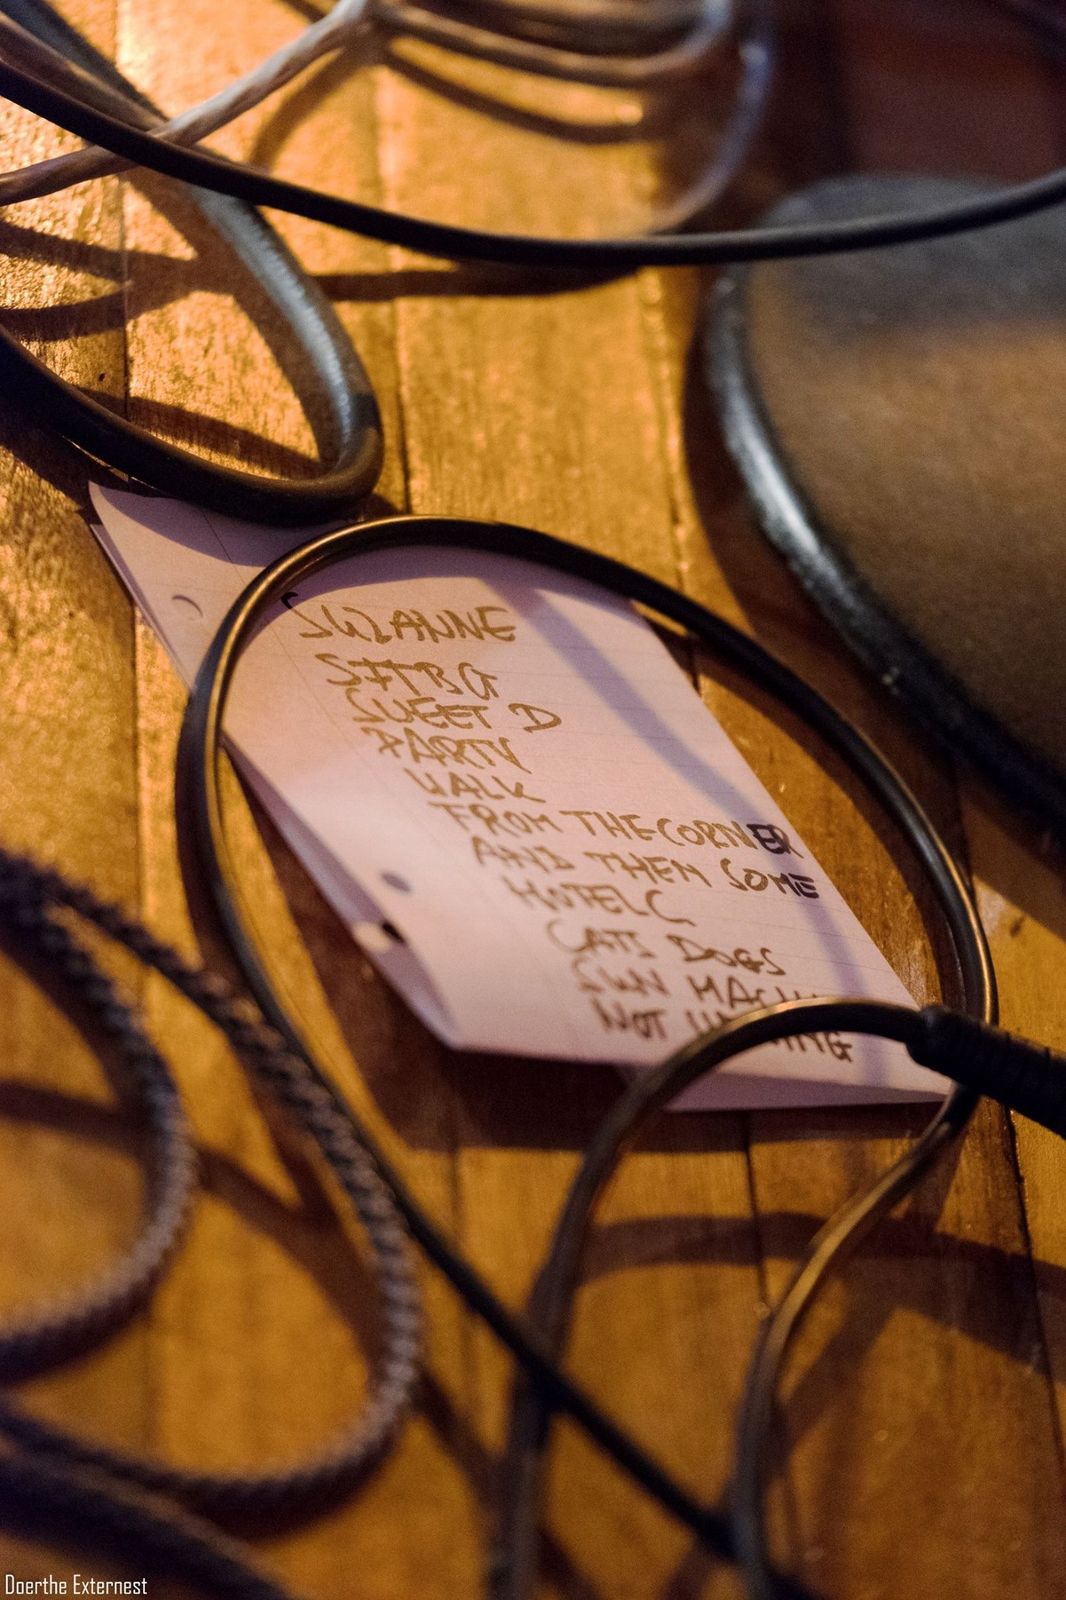 SUZANNE
SITBG
SWEET D
PARTY
WALK
FROM THE CORNER
AND THEN SOME
HOTEL C
CATS DOGS
SUN
NOT
Doerthe Externest